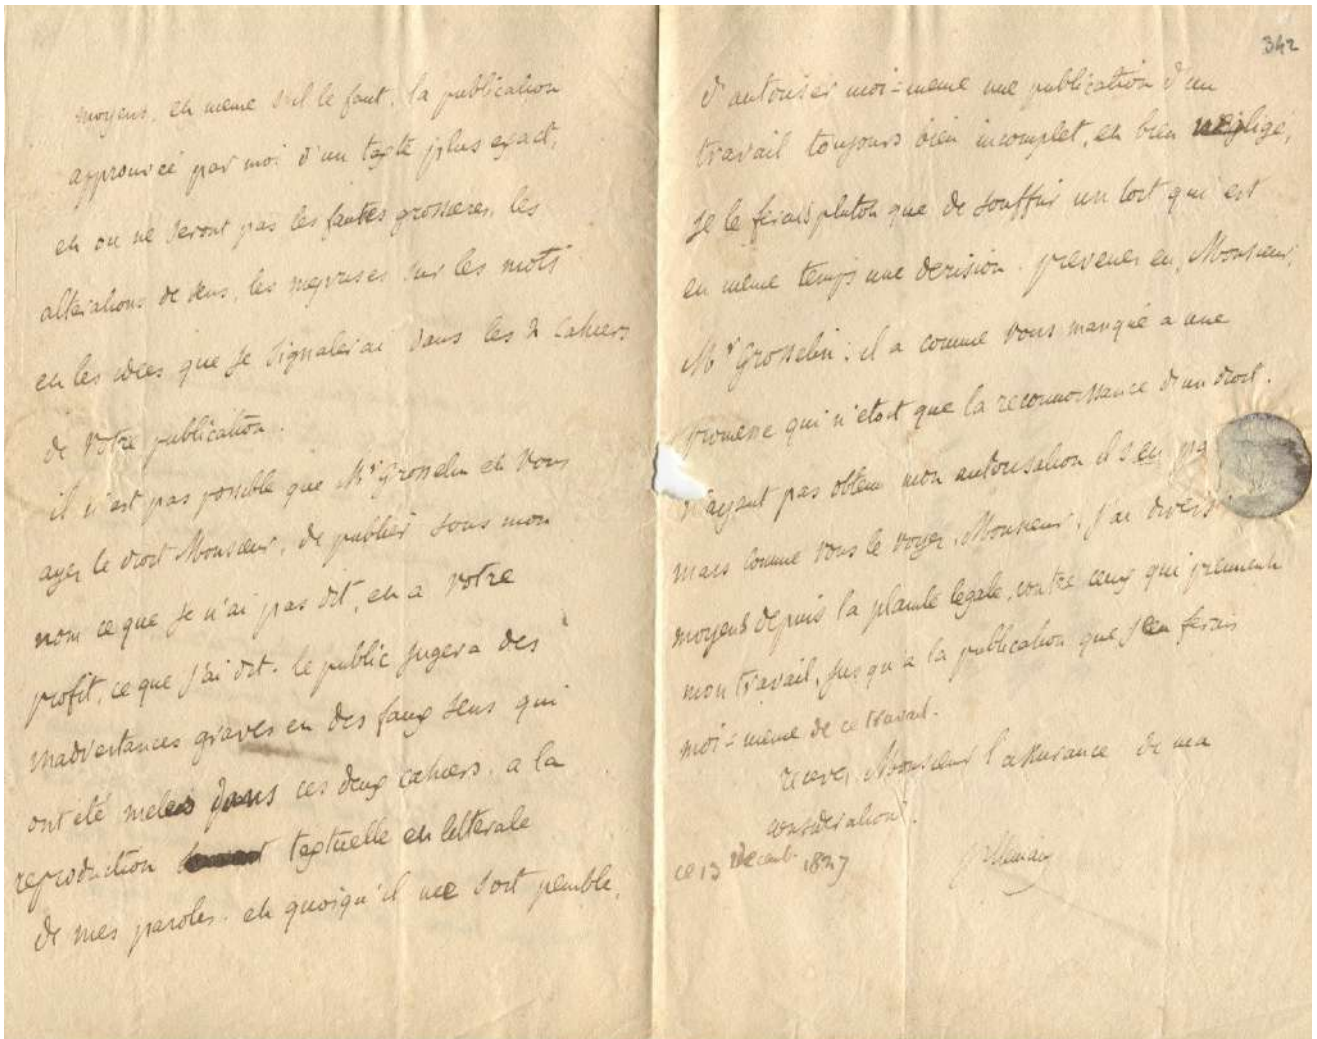 moyens, et meme s'il le faut, la publication
approuvée par moi d'un texte plus exact,
et ou ne seront pas les fautes grossieres, les
alterations de sens, les meprises sur les mots
et les idées que je signalerai dans les 2 Cahiers
de votre publication.
il n'est pas possible que Mr Grosselin et vous
ayez le droit Monsieur, de publier sous mon
nom ce que je n'ai pas dit, et a votre
profit, ce que j'ai dit. le public jugera des
inadvertances graves et des faux sens qui
ont été melés dans ces deux cahiers, a la
reproduction textuelle et litterale
de mes paroles. et quoiqu'il me soit penible,
342
d'autoriser moi-meme une publication d'un
travail toujours bien incomplet, et bien negligé,
je le ferais plutot que de souffrir un tort qui est
en meme temps une derision. prevenez en, Monsieur,
Mr Grosselin; il a comme vous manqué a une
promesse qui n'etoit que la reconnoissance d'un droit.
n'ayant pas obtenu mon autorisation il s'en
mais comme vous le voyez, Monsieur, j'ai divers
moyens depuis la plainte legale, contre ceux qui prennent
mon travail, jusqu'a la publication que j'en ferais
moi-meme de ce travail.
recevez, Monsieur l'assurance de ma
consideration.
ce 13 Decemb. 1827
Villemain